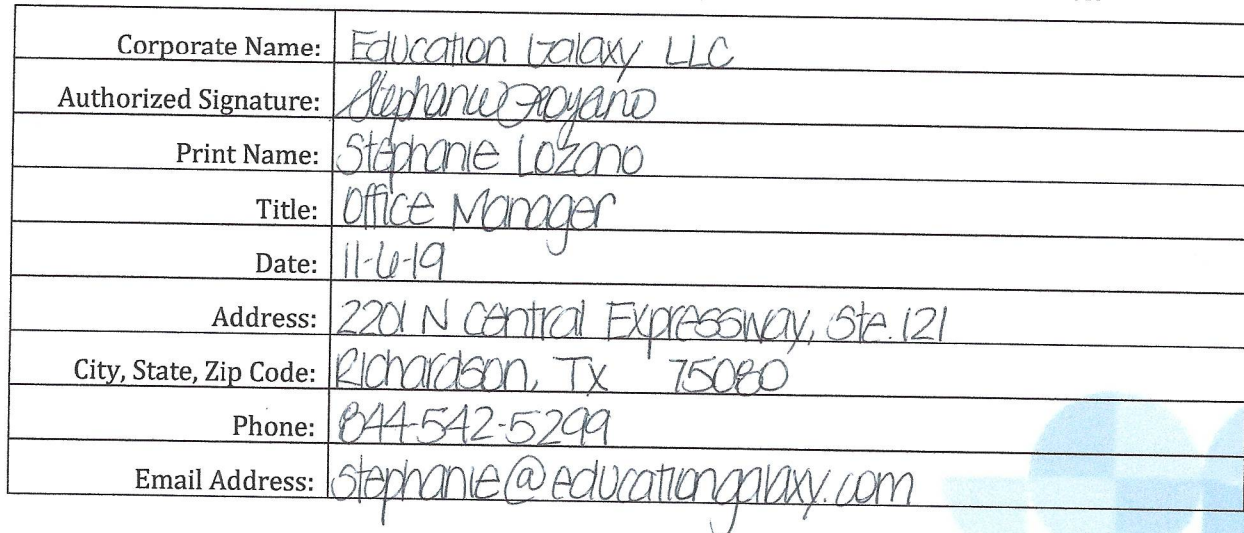 Corporate Name: Education Galaxy LLC
Authorized Signature: Stephanie Lozano
Print Name: Stephanie Lozano
Title: Office Manager
Date: 11-6-19
Address: 2201 N Central Expressway, Ste. 121
City, State, Zip Code: Richardson, TX 75080
Phone: 844-542-5299
Email Address: stephanie@educationgalaxy.com